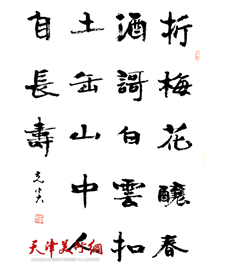 折梅花釀春
酒謌白雲扣
土缶山中人
自長壽
天津美術網